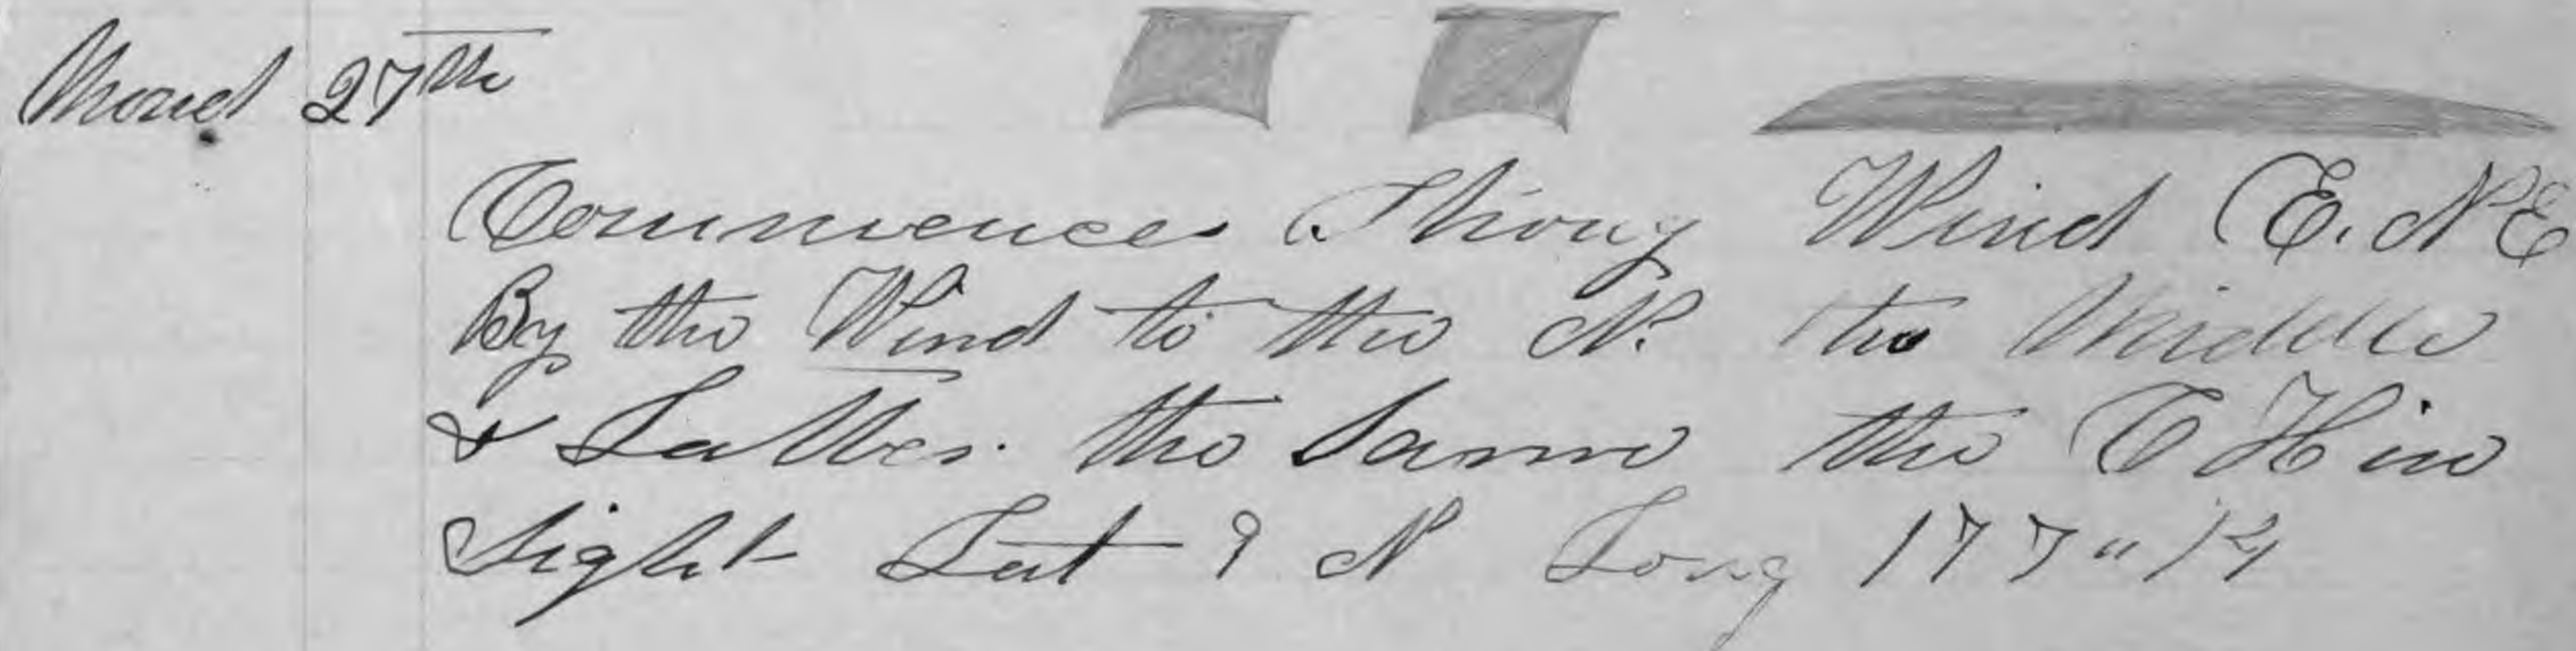 Mond 27th
Commences Strong Wind E. NE
By the Wind to the N. the Middle
& Latter the Same the C H in
Sight Lat 9 N Long 177"14